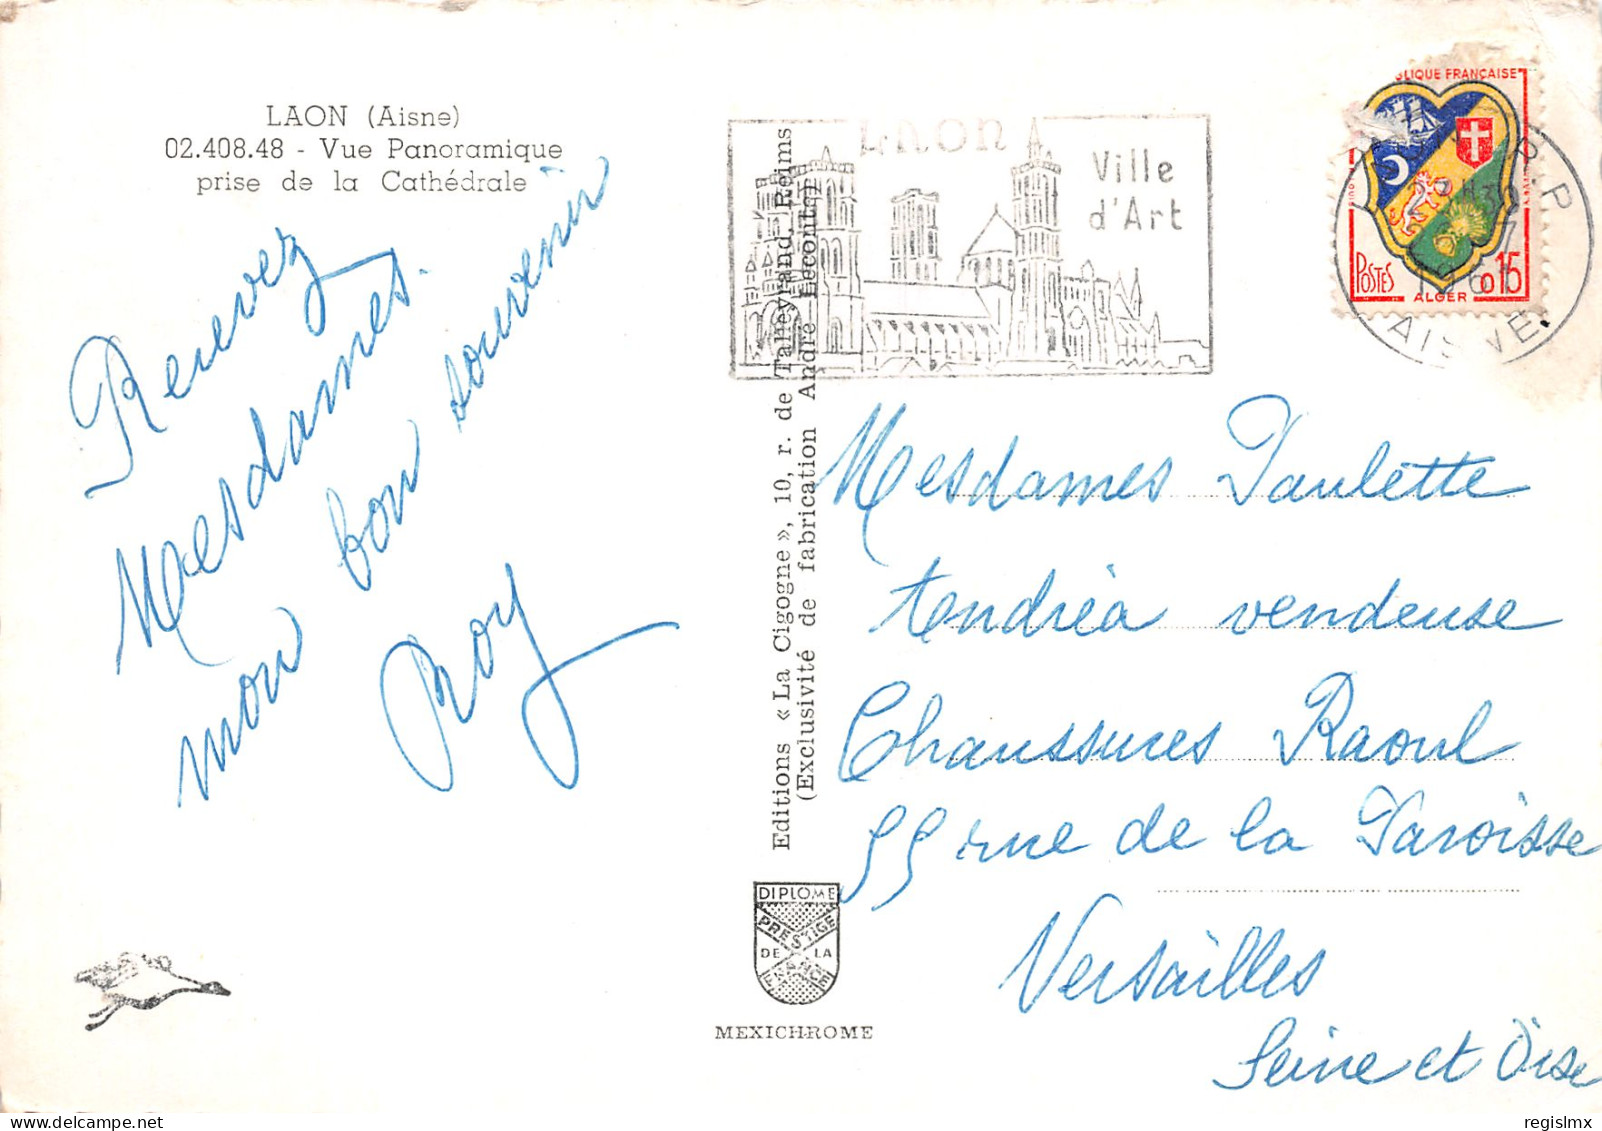 LAON (Aisne)
02.408.48 - Vue Panoramique
prise de la Cathédrale
Recevez
Mesdames.
mon bon souvenir
Roy
Editions « La Cigogne », 10, r. de Talleyrand, Reims
(Exclusivité de fabrication André Leconte)
DIPLOME
PRESTIGE
DE LA
FRANCE
MEXICHROME
LAON
Ville
d'Art
PUBLIQUE FRANÇAISE
POSTES
0,15
ALGER
R.P
AISNE
Mesdames Paulette
Andréa vendeuse
Chaussures Raoul
55 rue de la Paroisse
Versailles
Seine et Oise
regislmx